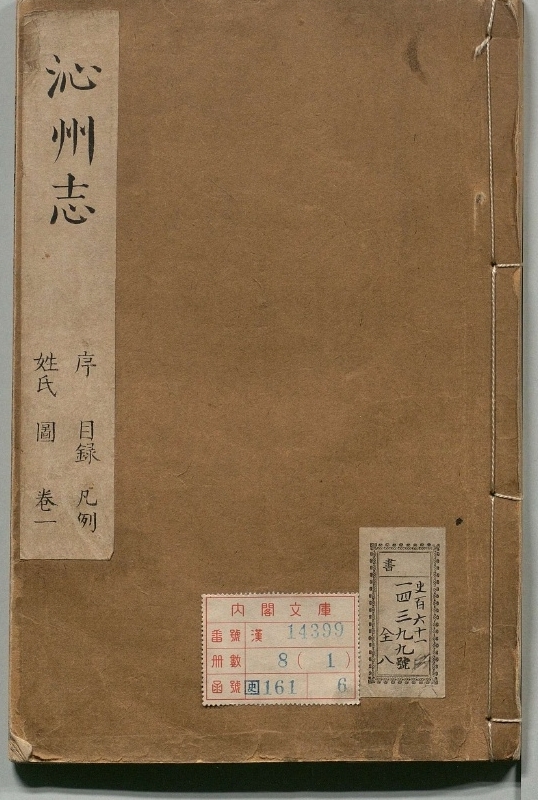 沁州志
序 目録 凡例
姓氏 圖 卷一
内閣文庫
番號 漢 14399
册數 8(1)
函號 史161 6
書
史百六十一
一四三九九號
全八